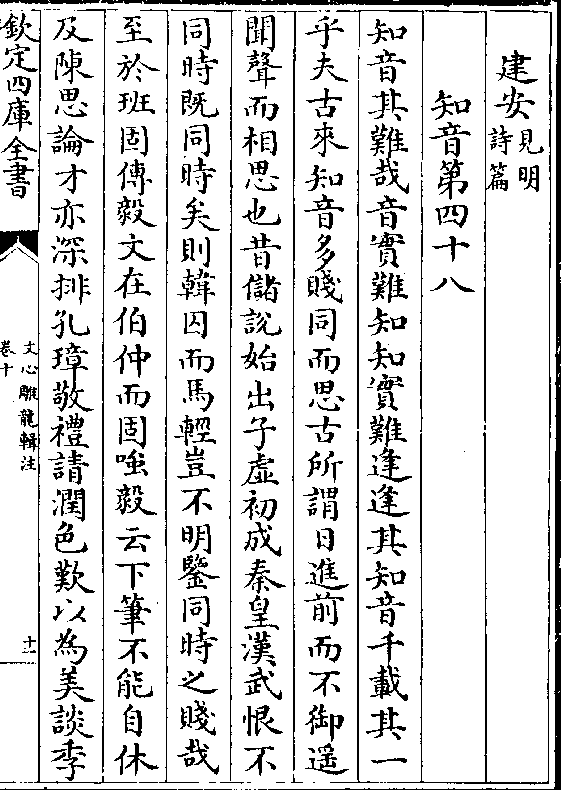 建安見明
詩篇
知音第四十八
知音其難哉音實難知知實難逢逢其知音千載其一
乎夫古來知音多賤同而思古所謂日進前而不御遥
聞聲而相思也昔儲說始出子虛初成秦皇漢武恨不
同時既同時矣則韓囚而馬輕豈不明鑒同時之賤哉
至於班固傅毅文在伯仲而固嗤毅云下筆不能自休
及陳思論才亦深排孔璋敬禮請潤色歎以為美談季
欽定四庫全書
文心雕龍輯注
卷十
十一